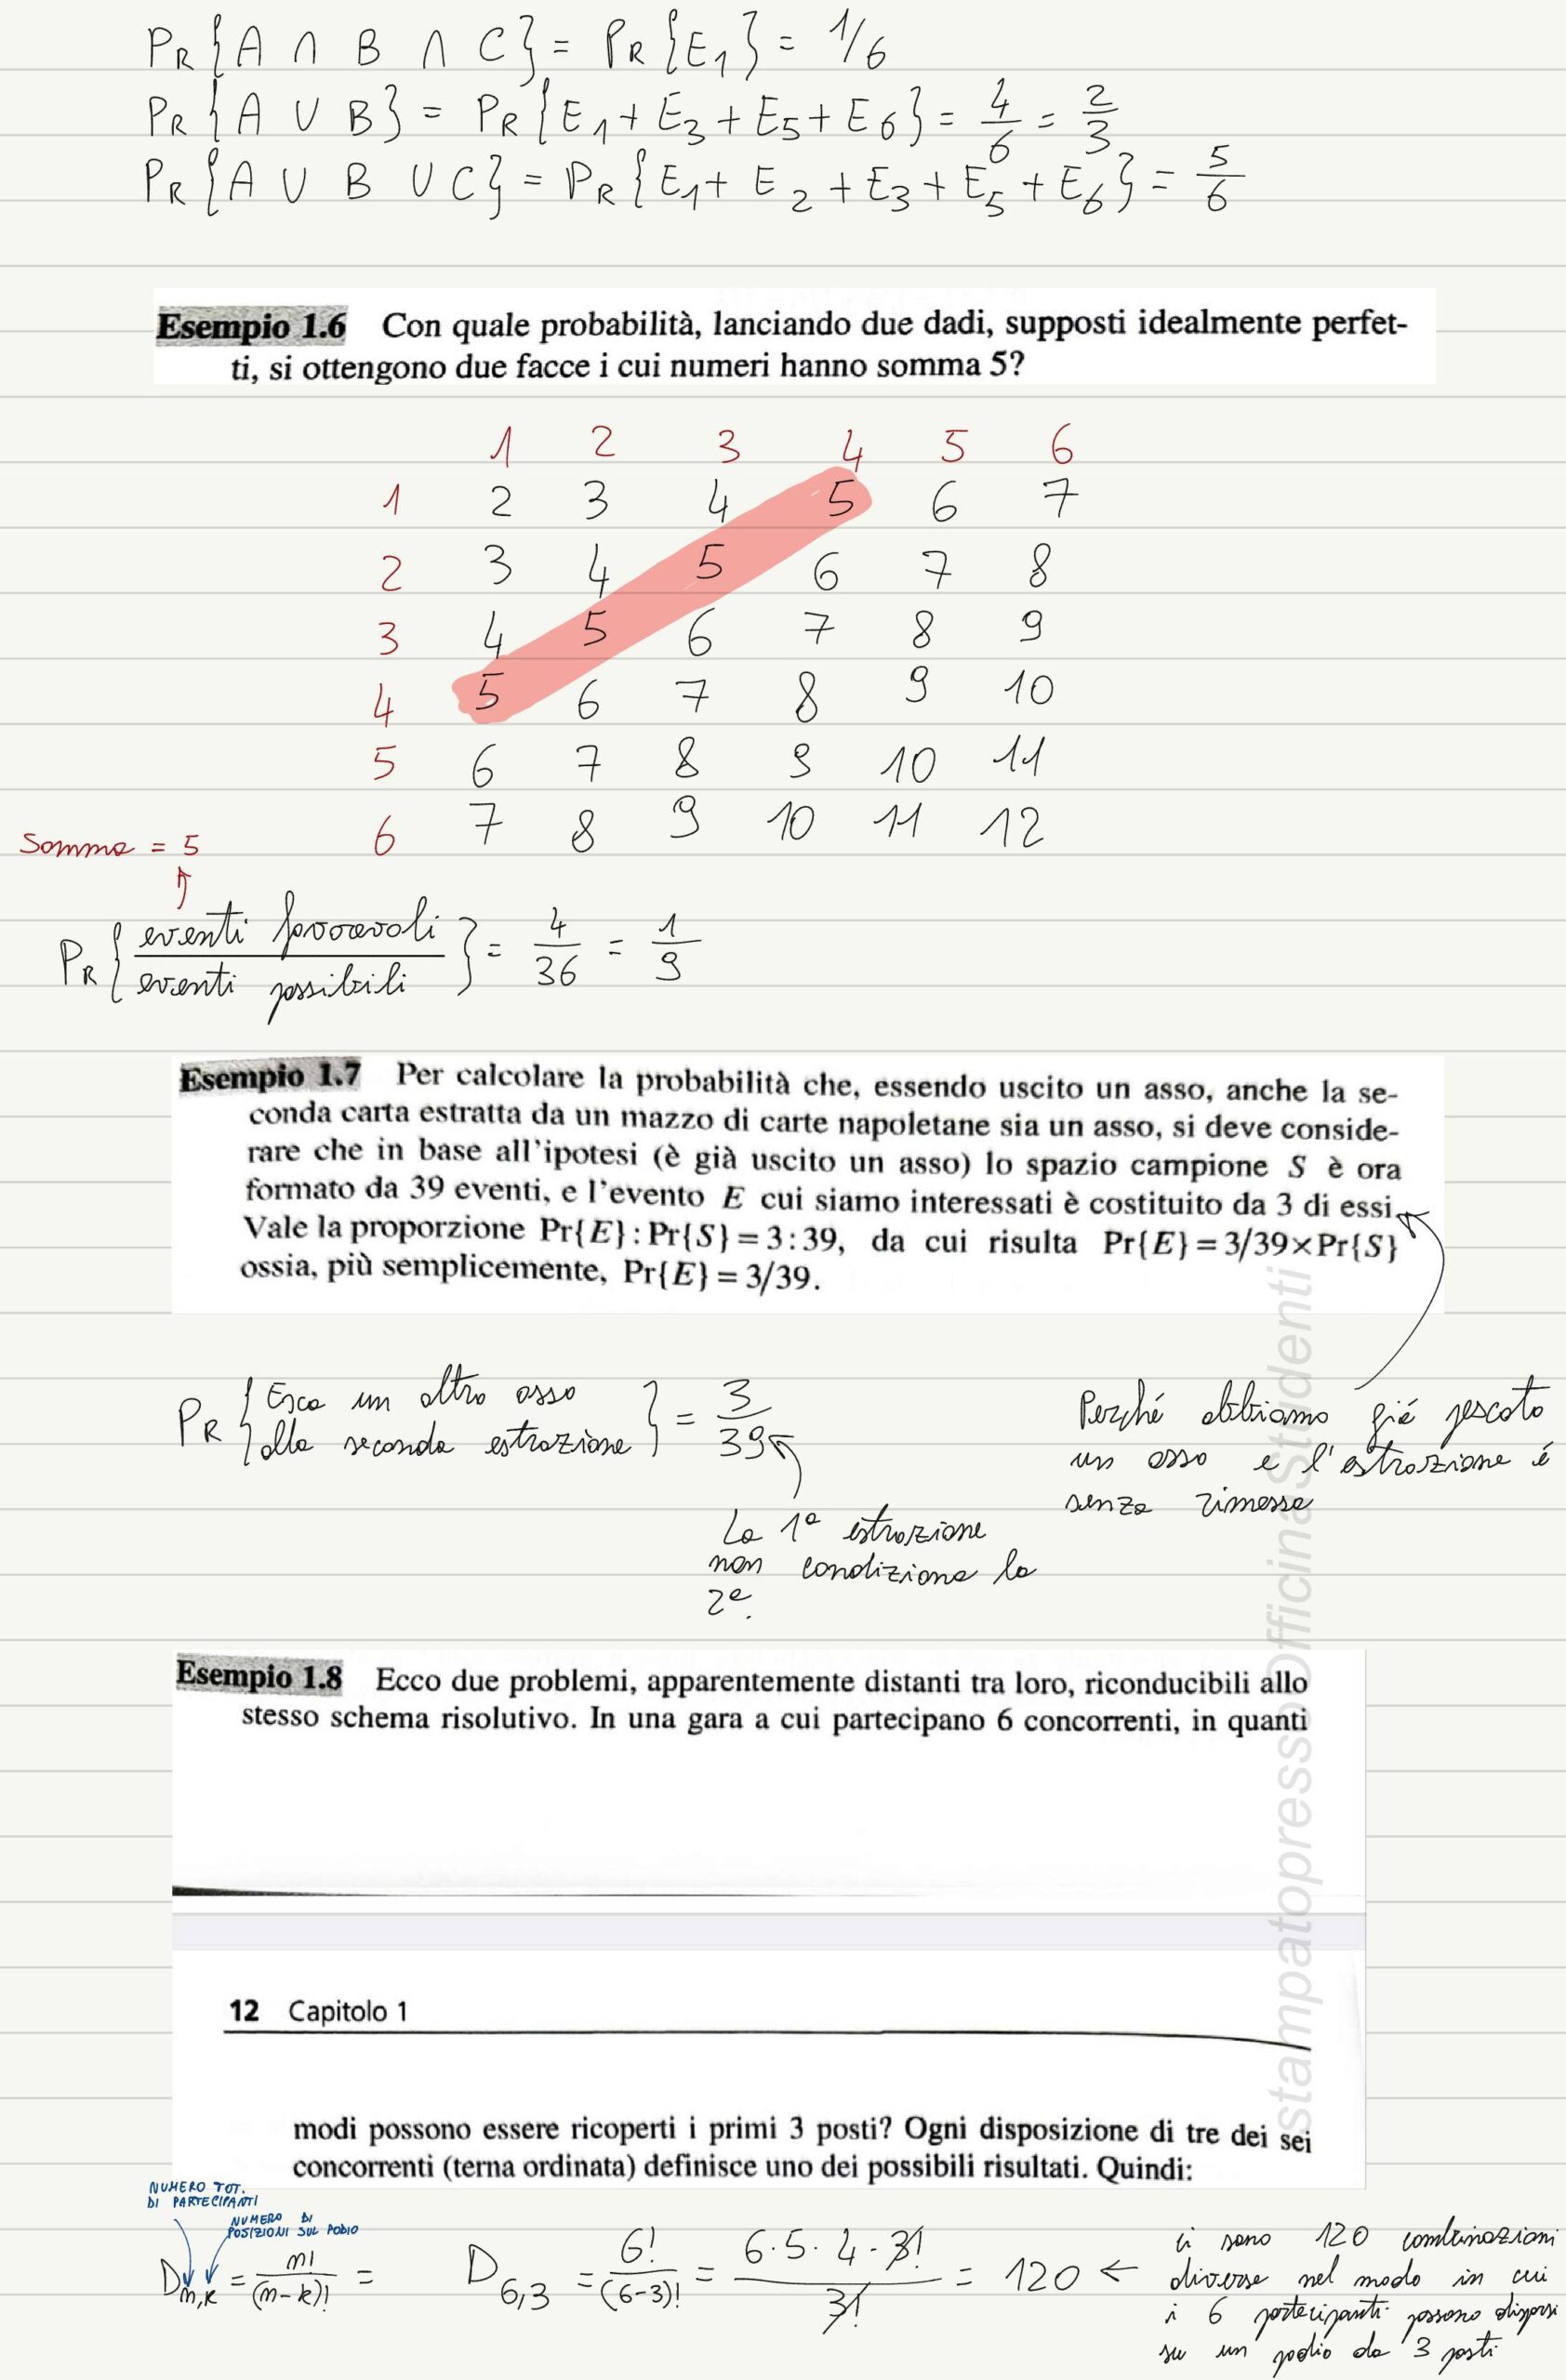 PR{A ∩ B ∩ C} = PR{E1} = 1/6
PR{A ∪ B} = PR{E1 + E3 + E5 + E6} = 4/6 = 2/3
PR{A ∪ B ∪ C} = PR{E1 + E2 + E3 + E5 + E6} = 5/6
Esempio 1.6 Con quale probabilità, lanciando due dadi, supposti idealmente perfet-
ti, si ottengono due facce i cui numeri hanno somma 5?
1 2 3 4 5 6
1 2 3 4 5 6 7
2 3 4 5 6 7 8
3 4 5 6 7 8 9
4 5 6 7 8 9 10
5 6 7 8 9 10 11
6 7 8 9 10 11 12
Somma = 5
PR{eventi favorevoli / eventi possibili} = 4/36 = 1/9
Esempio 1.7 Per calcolare la probabilità che, essendo uscito un asso, anche la se-
conda carta estratta da un mazzo di carte napoletane sia un asso, si deve conside-
rare che in base all'ipotesi (è già uscito un asso) lo spazio campione S è ora
formato da 39 eventi, e l'evento E cui siamo interessati è costituito da 3 di essi.
Vale la proporzione Pr{E} : Pr{S} = 3 : 39, da cui risulta Pr{E} = 3/39×Pr{S}
ossia, più semplicemente, Pr{E} = 3/39.
PR{Esca un altro asso
alla seconda estrazione} = 3/39
Perché abbiamo già pescato
un asso e l'estrazione é
senza rimessa
La 1ª estrazione
non condiziona la
2ª.
Esempio 1.8 Ecco due problemi, apparentemente distanti tra loro, riconducibili allo
stesso schema risolutivo. In una gara a cui partecipano 6 concorrenti, in quanti
12 Capitolo 1
modi possono essere ricoperti i primi 3 posti? Ogni disposizione di tre dei sei
concorrenti (terna ordinata) definisce uno dei possibili risultati. Quindi:
NUMERO TOT.
DI PARTECIPANTI
NUMERO DI
POSIZIONI SUL PODIO
Dn,k = n!/(n-k)! = D6,3 = 6!/(6-3)! = 6·5·4·3!/3! = 120 ←
ci sono 120 combinazioni
diverse nel modo in cui
i 6 partecipanti possono disporsi
su un podio da 3 posti
stampatopressoOfficinaStudenti